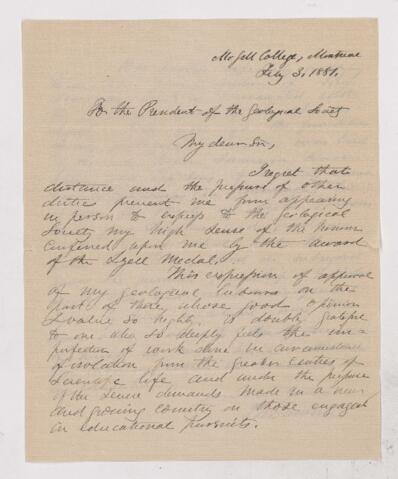 McGill College, Montreal
Feby 3, 1881.
To the President of the Geological Society
My dear Sir,
I regret that
distance and the pressure of other
duties prevent me from appearing
in person to express to the Geological
Society my high sense of the honour
conferred upon me by the award
of the Lyell Medal.
This expression of approval
of my geological labours on the
part of those whose good opinion
I value so highly is doubly grateful
to one who so deeply feels the im-
perfection of work done in circumstances
of isolation from the greater centres of
Scientific life and under the pressure
of the severe demands made in a new
and growing country on those engaged
in educational pursuits.